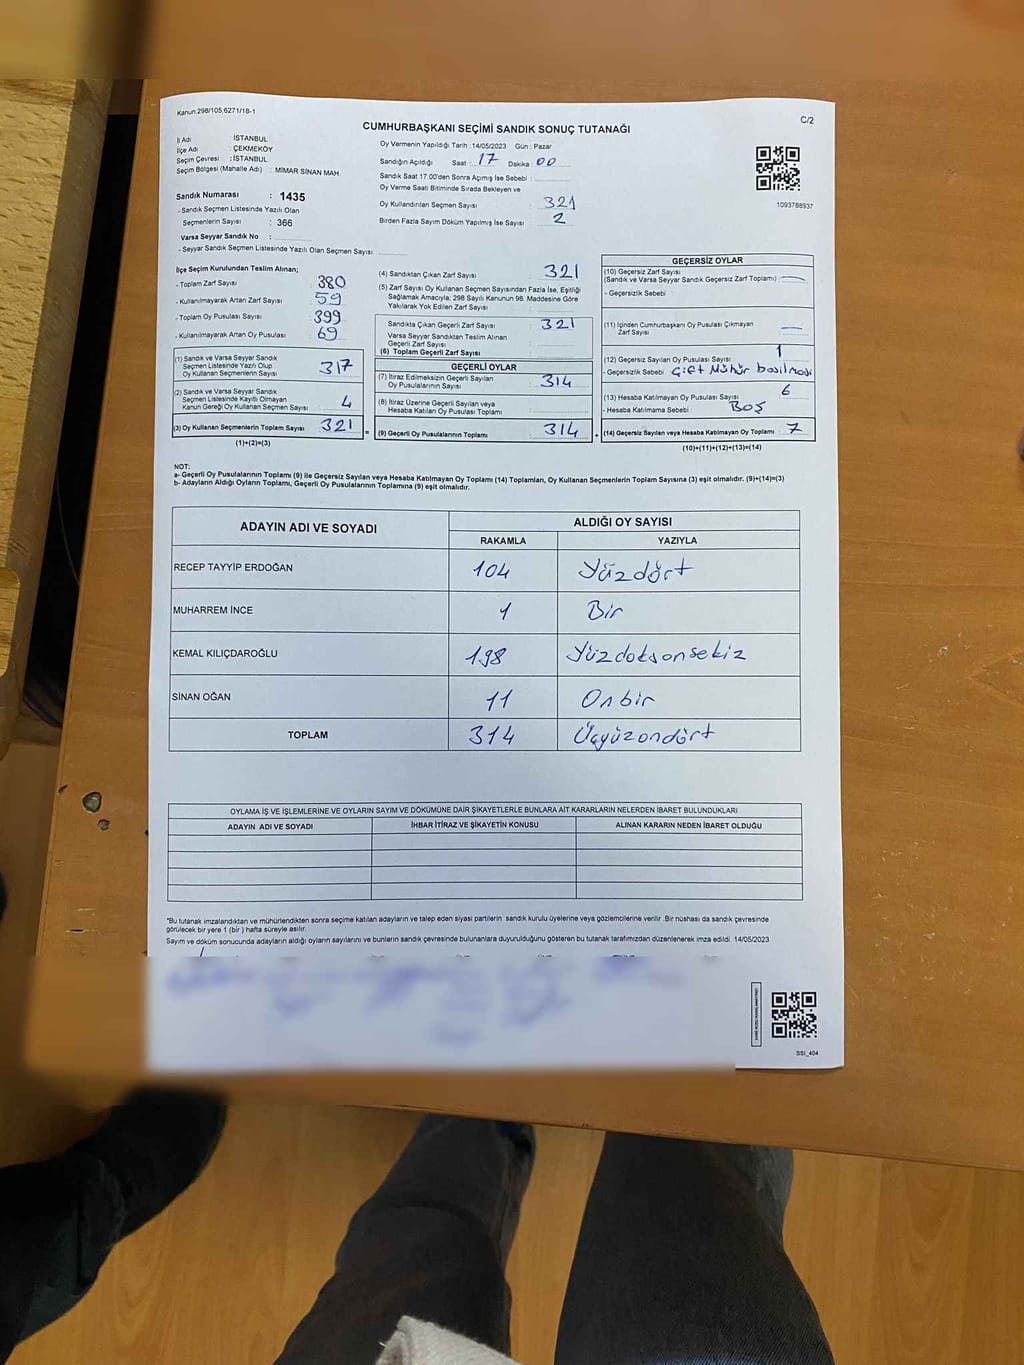 Kanun:298/105,6271/18-1
C/2
CUMHURBAŞKANI SEÇİMİ SANDIK SONUÇ TUTANAĞI
İl Adı : İSTANBUL
İlçe Adı : ÇEKMEKÖY
Seçim Çevresi : İSTANBUL
Seçim Bölgesi (Mahalle Adı) : MİMAR SİNAN MAH.
Sandık Numarası : 1435
- Sandık Seçmen Listesinde Yazılı Olan
Seçmenlerin Sayısı : 366
Varsa Seyyar Sandık No :
- Seyyar Sandık Seçmen Listesinde Yazılı Olan Seçmen Sayısı:
Oy Vermenin Yapıldığı Tarih :14/05/2023 Gün : Pazar
Sandığın Açıldığı Saat : 17 Dakika : 00
Sandık Saat 17.00'den Sonra Açımış İse Sebebi :
Oy Verme Saati Bitiminde Sırada Bekleyen ve
Oy Kullandırılan Seçmen Sayısı : 321
Birden Fazla Sayım Döküm Yapılmış İse Sayısı : 2
1093788937
İlçe Seçim Kurulundan Teslim Alınan;
- Toplam Zarf Sayısı : 380
- Kullanılmayarak Artan Zarf Sayısı : 59
- Toplam Oy Pusulası Sayısı : 399
- Kullanılmayarak Artan Oy Pusulası : 69
(1) Sandık ve Varsa Seyyar Sandık
Seçmen Listesinde Yazılı Olup
Oy Kullanan Seçmenlerin Sayısı : 317
(2) Sandık ve Varsa Seyyar Sandık
Seçmen Listesinde Kayıtlı Olmayan
Kanun Gereği Oy Kullanan Seçmen Sayısı : 4
(3) Oy Kullanan Seçmenlerin Toplam Sayısı : 321
(1)+(2)=(3)
(4) Sandıktan Çıkan Zarf Sayısı : 321
(5) Zarf Sayısı Oy Kullanan Seçmen Sayısından Fazla İse, Eşitliği
Sağlamak Amacıyla, 298 Sayılı Kanunun 98. Maddesine Göre
Yakılarak Yok Edilen Zarf Sayısı :
Sandıkta Çıkan Geçerli Zarf Sayısı : 321
Varsa Seyyar Sandıktan Teslim Alınan
Geçerli Zarf Sayısı :
(6) Toplam Geçerli Zarf Sayısı :
GEÇERLİ OYLAR
(7) İtiraz Edilmeksizin Geçerli Sayılan
Oy Pusulalarının Sayısı : 314
(8) İtiraz Üzerine Geçerli Sayılan veya
Hesaba Katılan Oy Pusulası Toplamı :
= (9) Geçerli Oy Pusulalarının Toplamı : 314 +
GEÇERSİZ OYLAR
(10) Geçersiz Zarf Sayısı
(Sandık ve Varsa Seyyar Sandık Geçersiz Zarf Toplamı) : —
- Geçersizlik Sebebi :
(11) İçinden Cumhurbaşkanı Oy Pusulası Çıkmayan
Zarf Sayısı : —
(12) Geçersiz Sayılan Oy Pusulası Sayısı : 1
- Geçersizlik Sebebi : Çift Mühür basılması
(13) Hesaba Katılmayan Oy Pusulası Sayısı : 6
- Hesaba Katılmama Sebebi : Boş
(14) Geçersiz Sayılan veya Hesaba Katılmayan Oy Toplamı : 7
(10)+(11)+(12)+(13)=(14)
NOT:
a- Geçerli Oy Pusulalarının Toplamı (9) ile Geçersiz Sayılan veya Hesaba Katılmayan Oy Toplamı (14) Toplamları, Oy Kullanan Seçmenlerin Toplam Sayısına (3) eşit olmalıdır. (9)+(14)=(3)
b- Adayların Aldığı Oyların Toplamı, Geçerli Oy Pusulalarının Toplamına (9) eşit olmalıdır.
ADAYIN ADI VE SOYADI ALDIĞI OY SAYISI
RAKAMLA YAZIYLA
RECEP TAYYİP ERDOĞAN 104 Yüzdört
MUHARREM İNCE 1 Bir
KEMAL KILIÇDAROĞLU 198 Yüzdoksonsekiz
SİNAN OĞAN 11 Onbir
TOPLAM 314 Üçyüzondört
OYLAMA İŞ VE İŞLEMLERİNE VE OYLARIN SAYIM VE DÖKÜMÜNE DAİR ŞİKAYETLERLE BUNLARA AİT KARARLARIN NELERDEN İBARET BULUNDUKLARI
ADAYIN ADI VE SOYADI İHBAR İTİRAZ VE ŞİKAYETİN KONUSU ALINAN KARARIN NEDEN İBARET OLDUĞU
*Bu tutanak imzalandıktan ve mühürlendikten sonra seçime katılan adayların ve talep eden siyasi partilerin sandık kurulu üyelerine veya gözlemcilerine verilir .Bir nüshası da sandık çevresinde
görülecek bir yere 1 (bir ) hafta süreyle asılır.
Sayım ve döküm sonucunda adayların aldığı oyların sayılarını ve bunların sandık çevresinde bulunanlara duyurulduğunu gösteren bu tutanak tarafımızdan düzenlenerek imza edildi. 14/05/2023
SSI_404